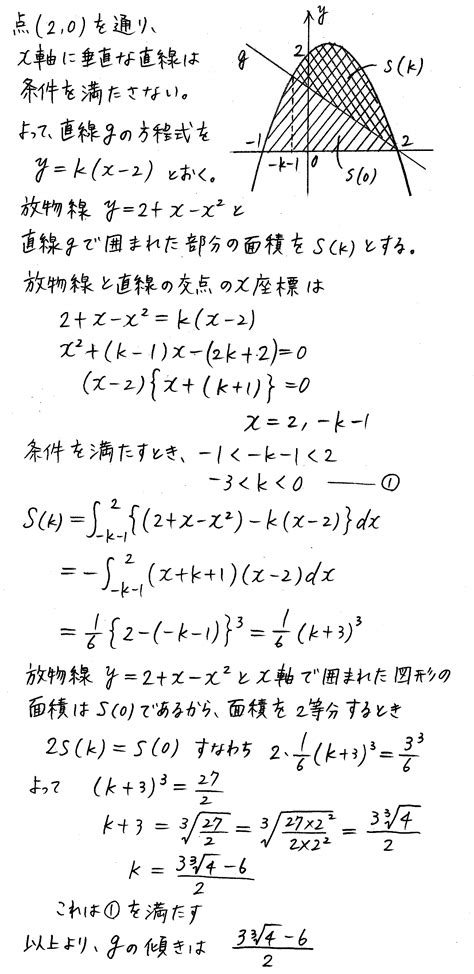 点(2,0)を通り、
x軸に垂直な直線は
条件を満たさない。
よって、直線gの方程式を
y=k(x-2) とおく。
y
g
2
S(k)
-1
-k-1
0
2
S(0)
放物線 y=2+x-x²と
直線gで囲まれた部分の面積をS(k)とする。
放物線と直線の交点のx座標は
2+x-x²=k(x-2)
x²+(k-1)x-(2k+2)=0
(x-2){x+(k+1)}=0
x=2,-k-1
条件を満たすとき、-1<-k-1<2
-3<k<0 ——①
S(k)=∫_{-k-1}^{2}{(2+x-x²)-k(x-2)}dx
=-∫_{-k-1}^{2}(x+k+1)(x-2)dx
=1/6{2-(-k-1)}³=1/6(k+3)³
放物線 y=2+x-x²とx軸で囲まれた図形の
面積はS(0)であるから、面積を2等分するとき
2S(k)=S(0) すなわち 2・1/6(k+3)³=3³/6
よって (k+3)³=27/2
k+3=∛(27/2)=∛(27×2²/2×2²)=3∛4/2
k=(3∛4-6)/2
これは①を満たす
以上より、gの傾きは (3∛4-6)/2